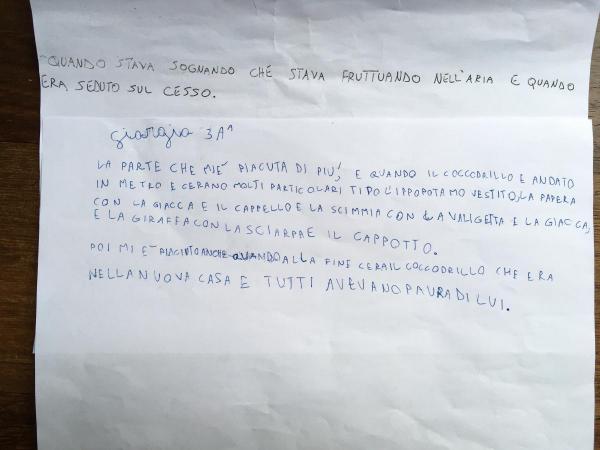 QUANDO STAVA SOGNANDO CHE STAVA FRUTTUANDO NELL'ARIA E QUANDO
ERA SEDUTO SUL CESSO.
giorgia 3A^
LA PARTE CHE MIE' PIACUTA DI PIU', E QUANDO IL COCCODRILLO E ANDATO
IN METRO E CERANO MOLTI PARTICOLARI TIPO L'IPPOPOTAMO VESTITO, LA PAPERA
CON LA GIACCA E IL CAPPELLO E LA SCIMMIA CON LA VALIGETTA E LA GIACCA,
E LA GIRAFFA CON LA SCIARPA E IL CAPPOTTO.
POI MI E' PIACIUTO ANCHE QUANDO ALLA FINE CERA IL COCCODRILLO CHE ERA
NELLA NUOVA CASA E TUTTI AVEVANO PAURA DI LUI.